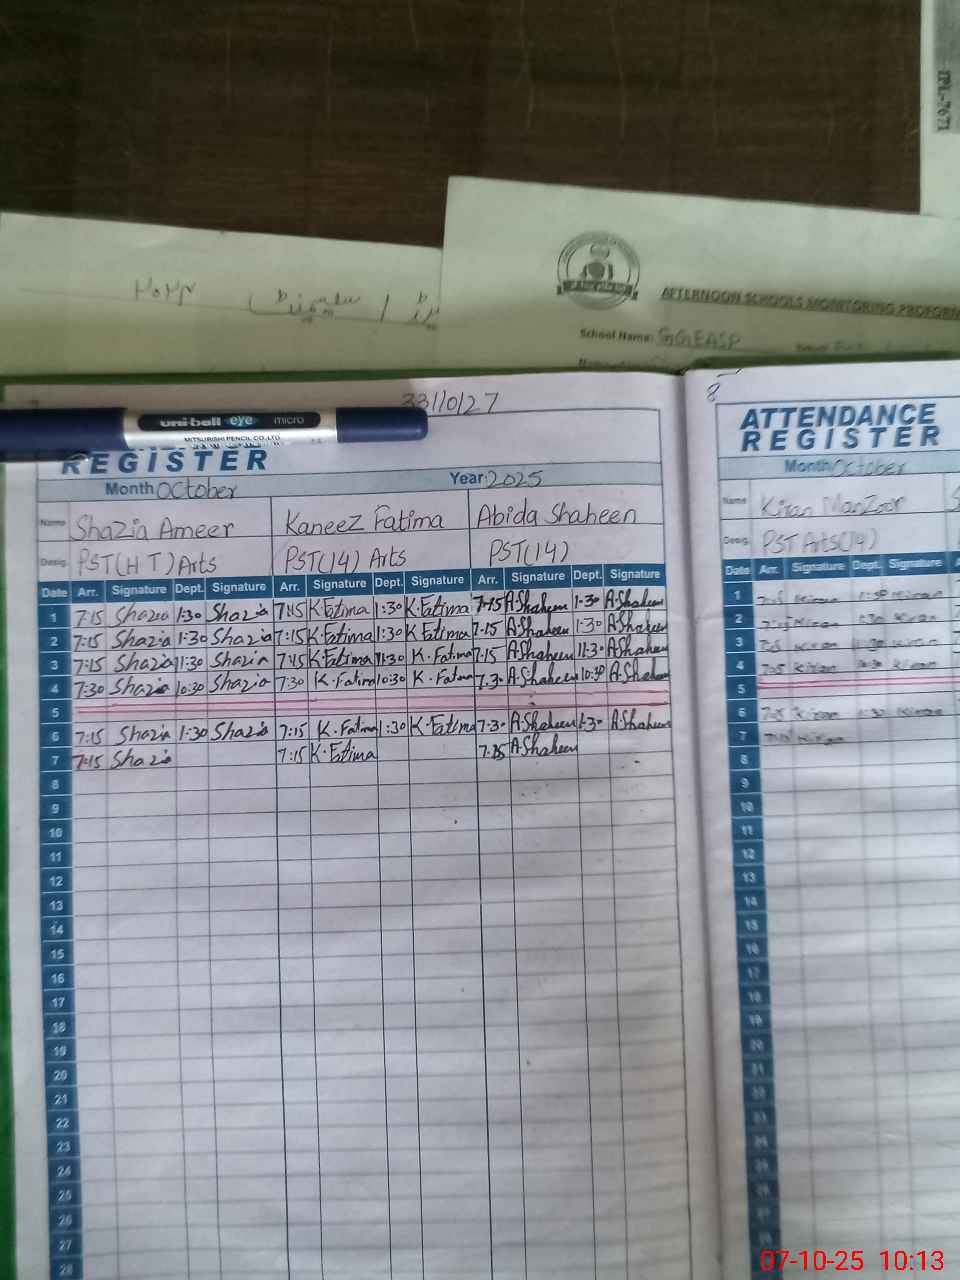 IPL-7671
AFTERNOON SCHOOLS MONITORING PROFORM
School Name: GGEASP
33110127
uni-ball eye micro
MITSUBISHI PENCIL CO.,LTD.
REGISTER
Month October Year: 2025
Name Shazia Ameer Kaneez Fatima Abida Shaheen
Desig. PST(HT) Arts PST(14) Arts PST(14)
Date Arr. Signature Dept. Signature Arr. Signature Dept. Signature Arr. Signature Dept. Signature
1 7:15 Shazia 1:30 Shazia 7:15 K.Fatima 1:30 K.Fatima 7:15 A.Shaheen 1:30 A.Shaheen
2 7:15 Shazia 1:30 Shazia 7:15 K.Fatima 1:30 K.Fatima 7:15 A.Shaheen 1:30 A.Shaheen
3 7:15 Shazia 11:30 Shazia 7:15 K.Fatima 11:30 K.Fatima 7:15 A.Shaheen 11:30 A.Shaheen
4 7:30 Shazia 10:30 Shazia 7:30 K.Fatima 10:30 K.Fatima 7:30 A.Shaheen 10:30 A.Shaheen
5
6 7:15 Shazia 1:30 Shazia 7:15 K.Fatima 1:30 K.Fatima 7:30 A.Shaheen 1:30 A.Shaheen
7 7:15 Shazia 7:15 K.Fatima 7:15 A.Shaheen
8
9
10
11
12
13
14
15
16
17
18
19
20
21
22
23
24
25
26
27
28
8
ATTENDANCE
REGISTER
Month October
Name Kiran Manzoor
Desig. PST Arts(14)
Date Arr. Signature Dept. Signature
1
2
3
4
5
6
7
8
9
10
11
12
13
14
15
16
17
18
19
07-10-25 10:13